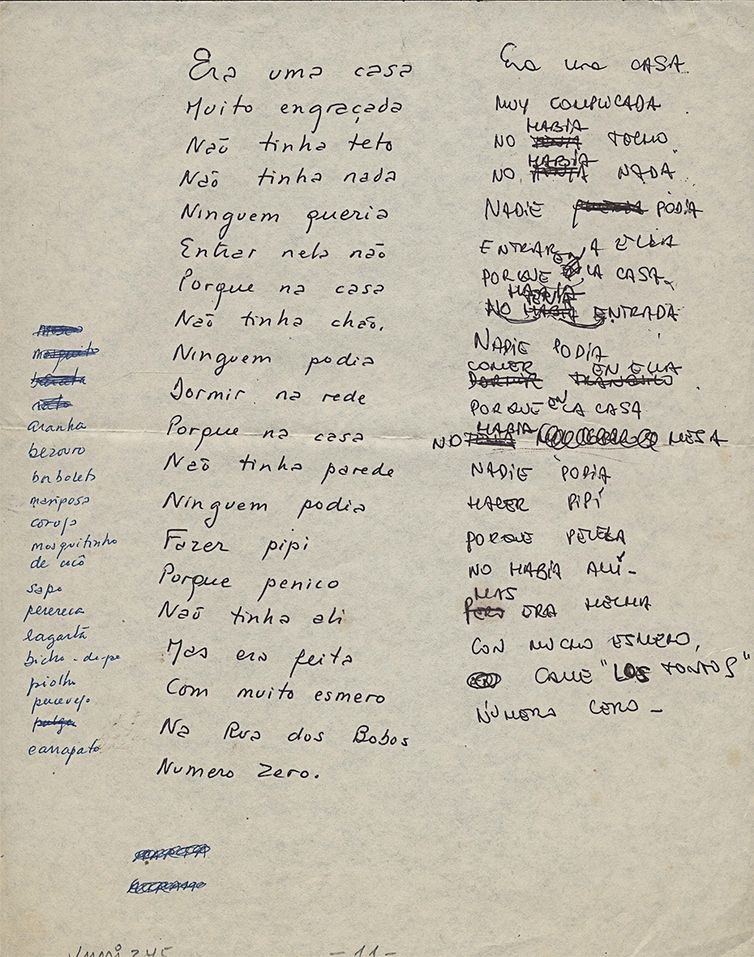 Era uma casa
Muito engraçada
Não tinha teto
Não tinha nada
Ninguem queria
Entrar nela não
Porque na casa
Não tinha chão.
Ninguem podia
Dormir na rede
Porque na casa
Não tinha parede
Ninguem podia
Fazer pipi
Porque penico
Não tinha ali
Mas era feita
Com muito esmero
Na Rua dos Bobos
Numero Zero.
Era una CASA
MUY COMPLICADA
HABIA
NO TECHO
HABIA
NO NADA
NADIE PODIA
ENTRAR A ELLA
EN
PORQUE LA CASA
NO ENTRADA
NADIE PODIA
COMER EN ELLA
DORMIR
PORQUE EN LA CASA
HABIA
NO MESA
NADIE PODIA
HACER PIPÍ
PORQUE PELELA
NO HABÍA ALLÍ -
MAS
PERO ERA HECHA
CON MUCHO ESMERO,
CALLE "LOS TONTOS"
NÚMERO CERO -
mosquito
barata
rato
aranha
bezouro
borboleta
mariposa
coruja
mosquitinho
de cocô
sapo
perereca
lagarta
bicho-de-pe
piolho
percevejo
pulga
carrapato
- 11 -